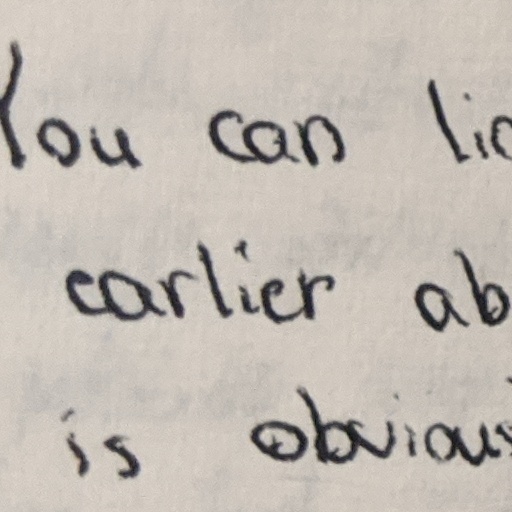 You can
earlier
is obvious